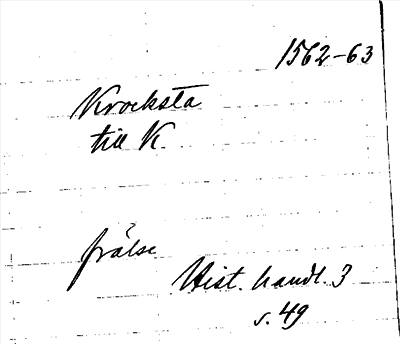 1562-63
Krocksta
till K.
frälse
Hist. handl. 3
s. 49